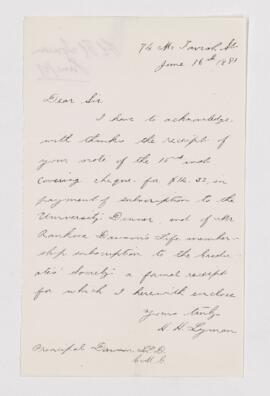 74 Mc Tavish St.
June 16th 1881
Dear Sir
I have to acknowledge
with thanks the receipt of
your note of the 15th inst
covering cheque for $14.32, in
payment of subscription to the
University Dinner, and of Mr
Rankine Dawson's Life member-
ship subscription to the Gradu-
ates' Society a formal receipt
for which I herewith enclose
Yours truly
H. H. Lyman
Principal Dawson LL.D.
C.M.G.